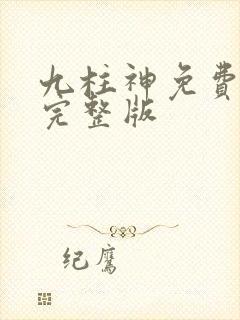 九柱神免費
完整版
纪鹰